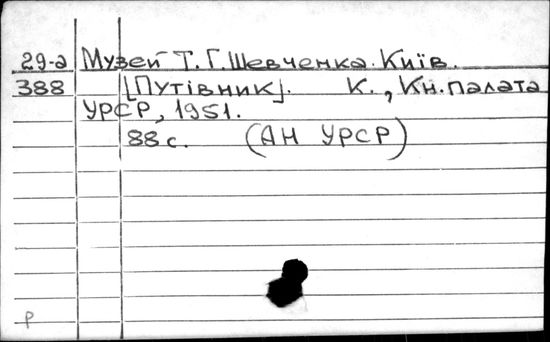 29-а Музей Т.Г.Шевченка. Київ.
388 [Путівник]. К., Кн.палата
УРСР, 1951.
88 с. (АН УРСР)
р